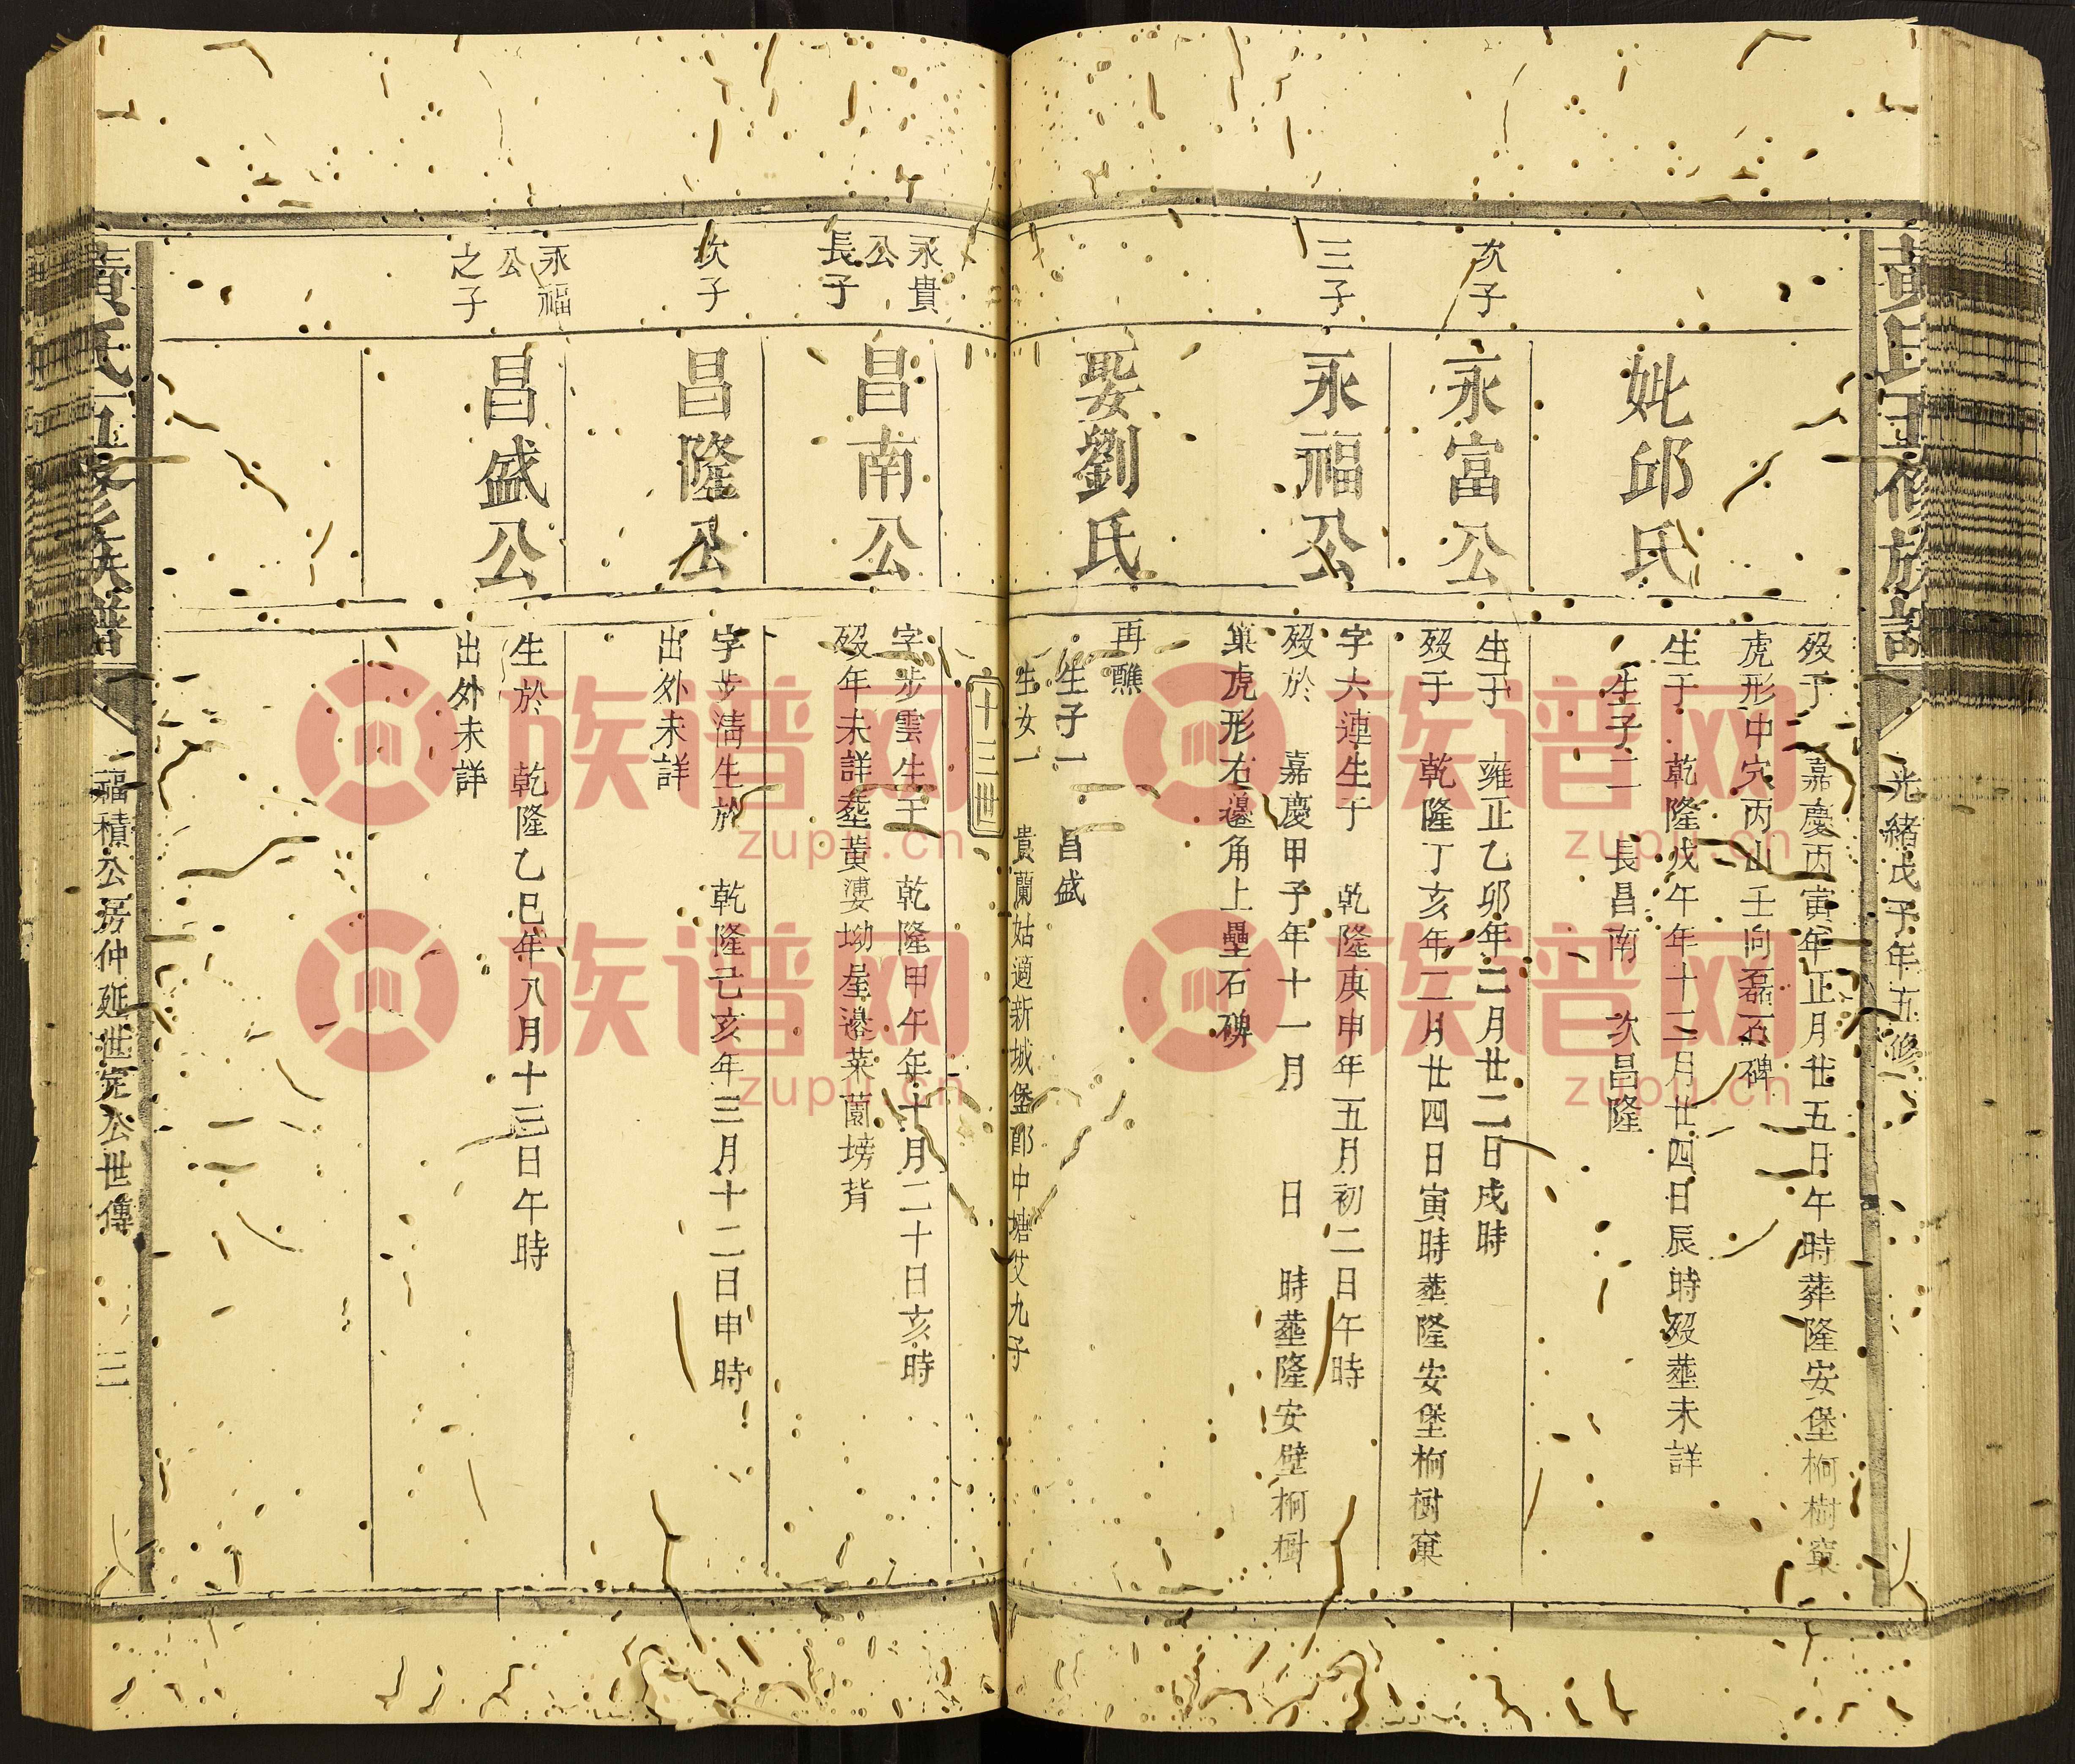 黃氏五修族譜
光緒戊子年五修
歿于　嘉慶丙寅年正月廿五日午時葬隆安堡桐樹窠
虎形中穴丙山壬向磊石碑
妣邱氏
生于　乾隆戊午年十二月廿四日辰時歿塟未詳
生子二　長昌南　次昌隆
次子
永富公
生于　雍正乙卯年三月廿二日戌時
歿于　乾隆丁亥年二月廿四日寅時塟隆安堡桐樹窠
三子
永福公
字大連生于　乾隆庚申年五月初二日午時
歿於　嘉慶甲子年十一月　日　時塟隆安堡桐樹
窠虎形右邊角上壘石碑
娶劉氏
再醮
生子一　昌盛
生女一　貴蘭姑適新城堡鄖中塘艾九子
十三世
永貴公長子
昌南公
字步雲生于　乾隆甲午年十月二十日亥時
歿年未詳塟黃婆坳屋邊菜園塝背
次子
昌隆公
字步清生於　乾隆己亥年三月十二日申時
出外未詳
永福公之子
昌盛公
生於　乾隆乙巳年八月十三日午時
出外未詳
黃氏五修族譜
福積公房仲延世完公世傳
三
族谱网
zupu.cn
族谱网
zupu.cn
族谱网
zupu.cn
族谱网
zupu.cn